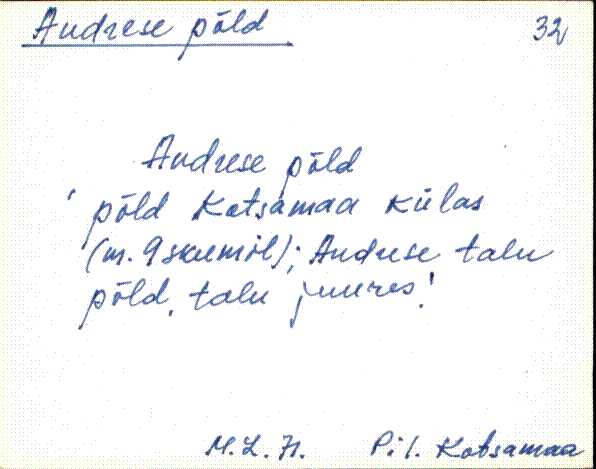 Andrese põld 32
Andrese põld
' põld Kotsamaa külas
Andrese talu
põld, talu juures!
Pil. Kotsamaa